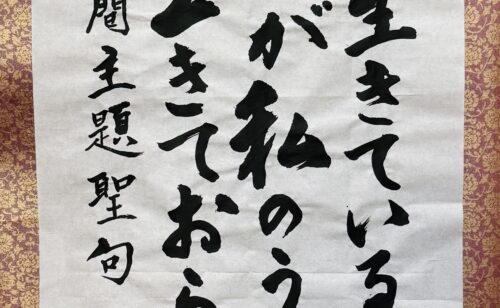 生きている
が私のう
きておら
間主題聖句